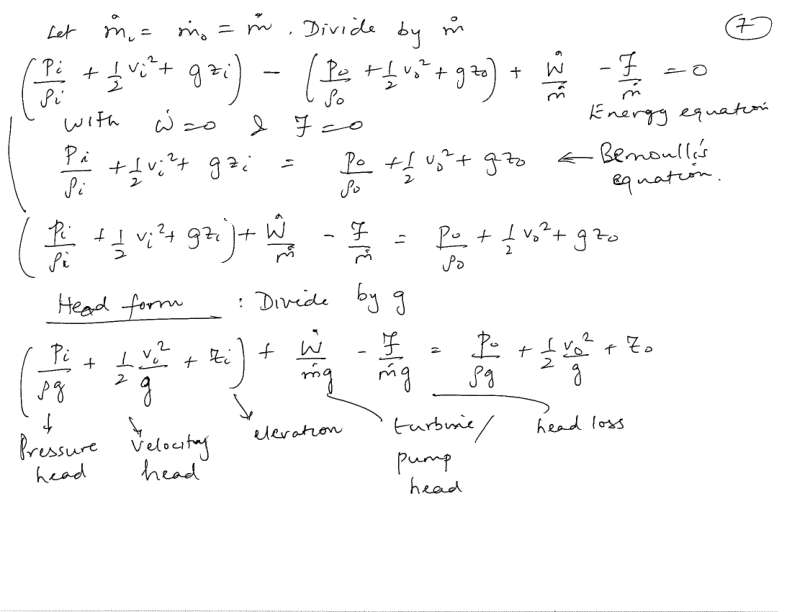 Let ṁᵢ = ṁₒ = ṁ . Divide by ṁ
7
(Pᵢ/ρᵢ + 1/2 vᵢ² + gzᵢ) − (Pₒ/ρₒ + 1/2 vₒ² + gzₒ) + Ẇ/ṁ − F/ṁ = 0
Energy equation
With Ẇ = 0 & F = 0
Pᵢ/ρᵢ + 1/2 vᵢ² + gzᵢ = Pₒ/ρₒ + 1/2 vₒ² + gzₒ ← Bernoulli's
equation.
(Pᵢ/ρᵢ + 1/2 vᵢ² + gzᵢ) + Ẇ/ṁ − F/ṁ = Pₒ/ρₒ + 1/2 vₒ² + gzₒ
Head form : Divide by g
(Pᵢ/ρg + 1/2 vᵢ²/g + zᵢ) + Ẇ/ṁg − F/ṁg = Pₒ/ρg + 1/2 vₒ²/g + zₒ
Pressure head
Velocity head
elevation
turbine/ pump head
head loss